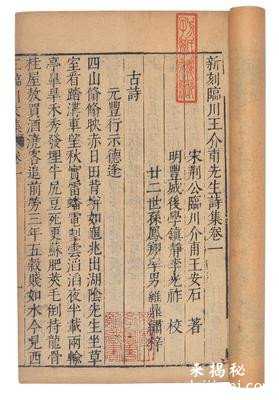 新刻臨川王介甫先生詩集卷一
宋荊公臨川介甫王安石 著
明豐城後學鎮靜李光祚 校
廿二世孫鳳翔 男維鼎繡梓
古詩
元豐行示德逢
四山翛翛映赤日田背坼如龜兆出湖陰先生坐草
室看踏溝車望秋實雷蟠電掣雲滔滔夜半載雨輸
亭皐旱禾秀發埋牛尻豆死更蘇肥莢毛倒持龍骨
挂屋敖買酒澆客追前勞三年五穀賤如水今見西
臨川
卷一
未揭秘